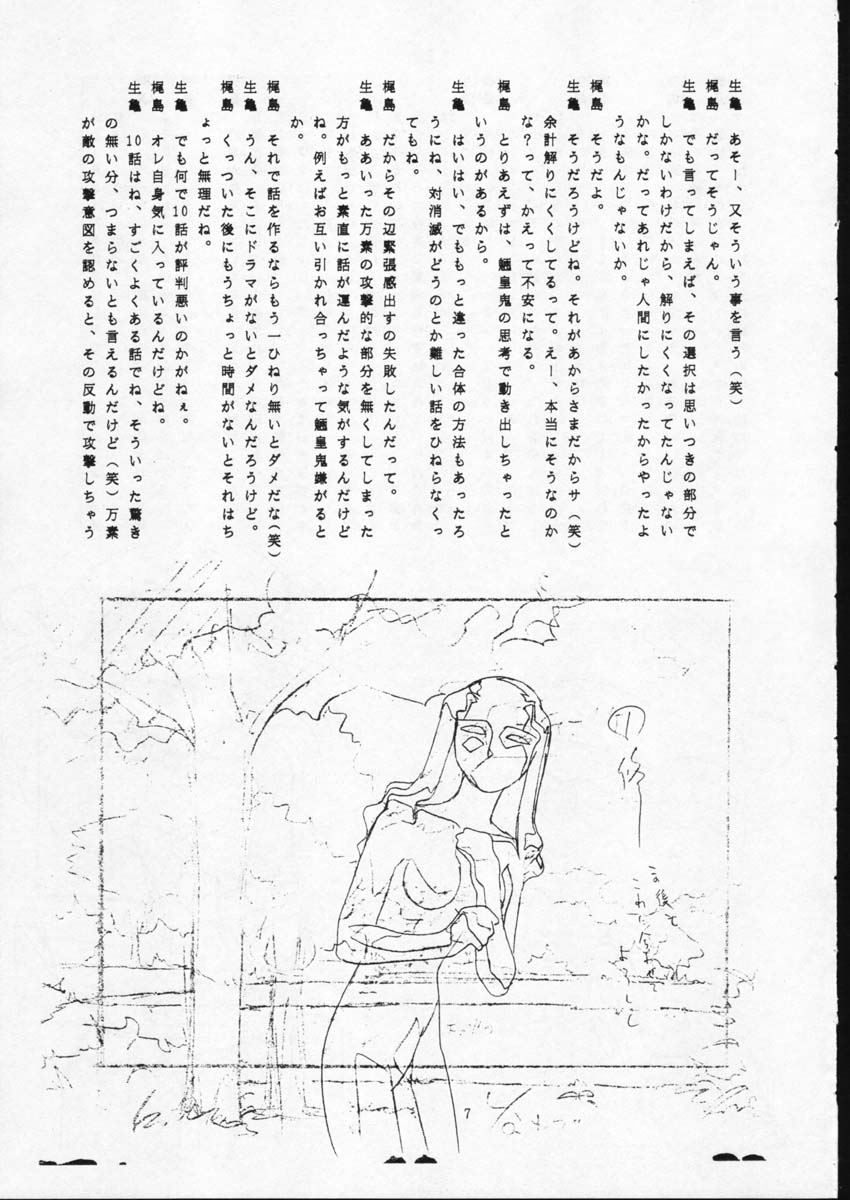 生亀　あそー、又そういう事を言う（笑）
梶島　だってそうじゃん。
生亀　でも言ってしまえば、その選択は思いつきの部分で
しかないわけだから、解りにくくなってたんじゃない
かな。だってあれじゃ人間にしたかったからやったよ
うなもんじゃないか。
梶島　そうだよ。
生亀　そうだろうけどね。それがあからさまだからサ（笑）
余計解りにくくしてるって。えー、本当にそうなのか
な？って、かえって不安になる。
梶島　とりあえずは、魎皇鬼の思考で動き出しちゃったと
いうのがあるから。
生亀　はいはい、でももっと違った合体の方法もあったろ
うにね、対消滅がどうのとか難しい話をひねらなくっ
てもね。
梶島　だからその辺緊張感出すの失敗したんだって。
生亀　ああいった万素の攻撃的な部分を無くしてしまった
方がもっと素直に話が運んだような気がするんだけど
ね。例えばお互い引かれ合っちゃって魎皇鬼嫌がると
か。
梶島　それで話を作るならもう一ひねり無いとダメだな（笑）
生亀　うん、そこにドラマがないとダメなんだろうけど。
梶島　くっついた後にもうちょっと時間がないとそれはち
ょっと無理だね。
生亀　でも何で10話が評判悪いのかがねぇ。
梶島　オレ自身気に入っているんだけどね。
生亀　10話はね、すごくよくある話でね、そういった驚き
の無い分、つまらないとも言えるんだけど（笑）万素
が敵の攻撃意図を認めると、その反動で攻撃しちゃう
①修
この後で